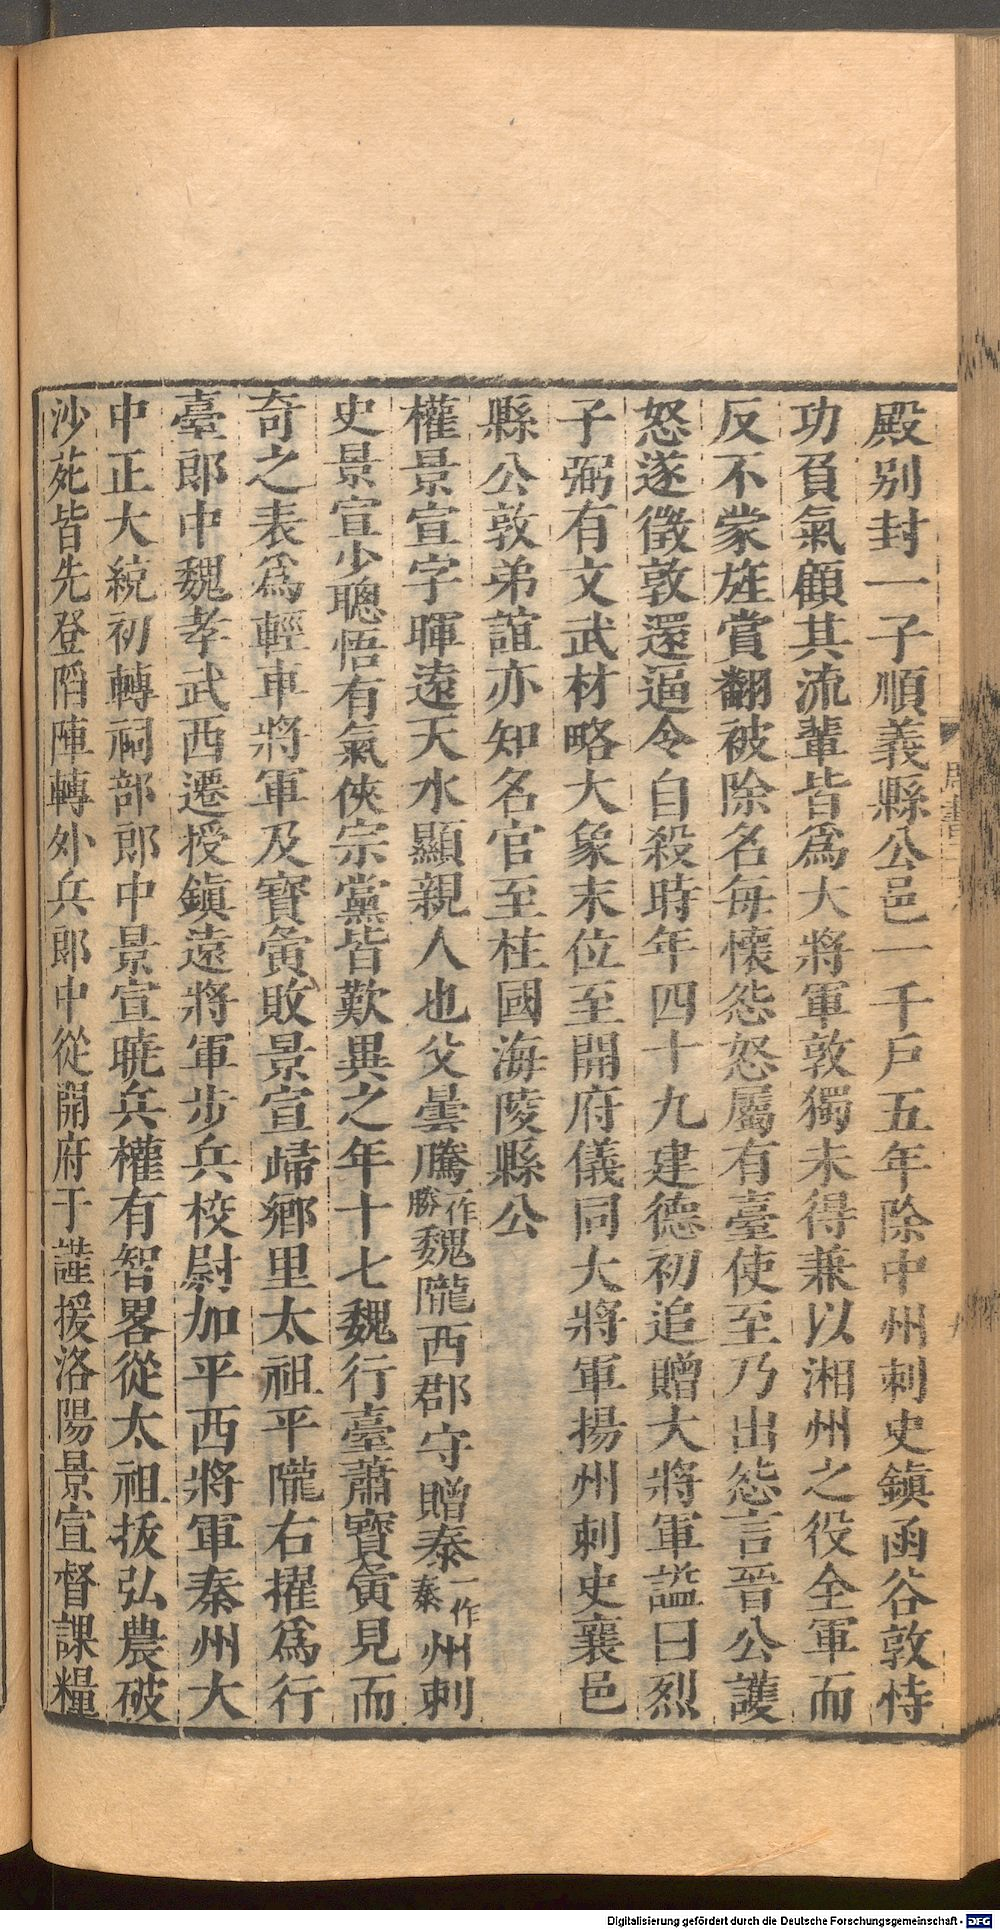 殿別封一子順義縣公邑一千戶五年除中州刺史鎮函谷敦恃
功負氣顧其流輩皆爲大將軍敦獨未得兼以湘州之役全軍而
反不蒙旌賞翻被除名每懷怨怒屬有臺使至乃出怨言晉公護
怒遂徵敦還逼令自殺時年四十九建德初追贈大將軍諡曰烈
子弼有文武材略大象末位至開府儀同大將軍揚州刺史襄邑
縣公敦弟誼亦知名官至柱國海陵縣公
權景宣字暉遠天水顯親人也父曇騰一作勝魏隴西郡守贈泰一作秦州刺
史景宣少聰悟有氣俠宗黨皆歎異之年十七魏行臺蕭寶夤見而
奇之表爲輕車將軍及寶夤敗景宣歸鄉里太祖平隴右擢爲行
臺郎中魏孝武西遷授鎮遠將軍步兵校尉加平西將軍秦州大
中正大統初轉祠部郎中景宣曉兵權有智畧從太祖拔弘農破
沙苑皆先登陷陣轉外兵郎中從開府于謹援洛陽景宣督課糧
周書
Digitalisierung gefördert durch die Deutsche Forschungsgemeinschaft - DFG